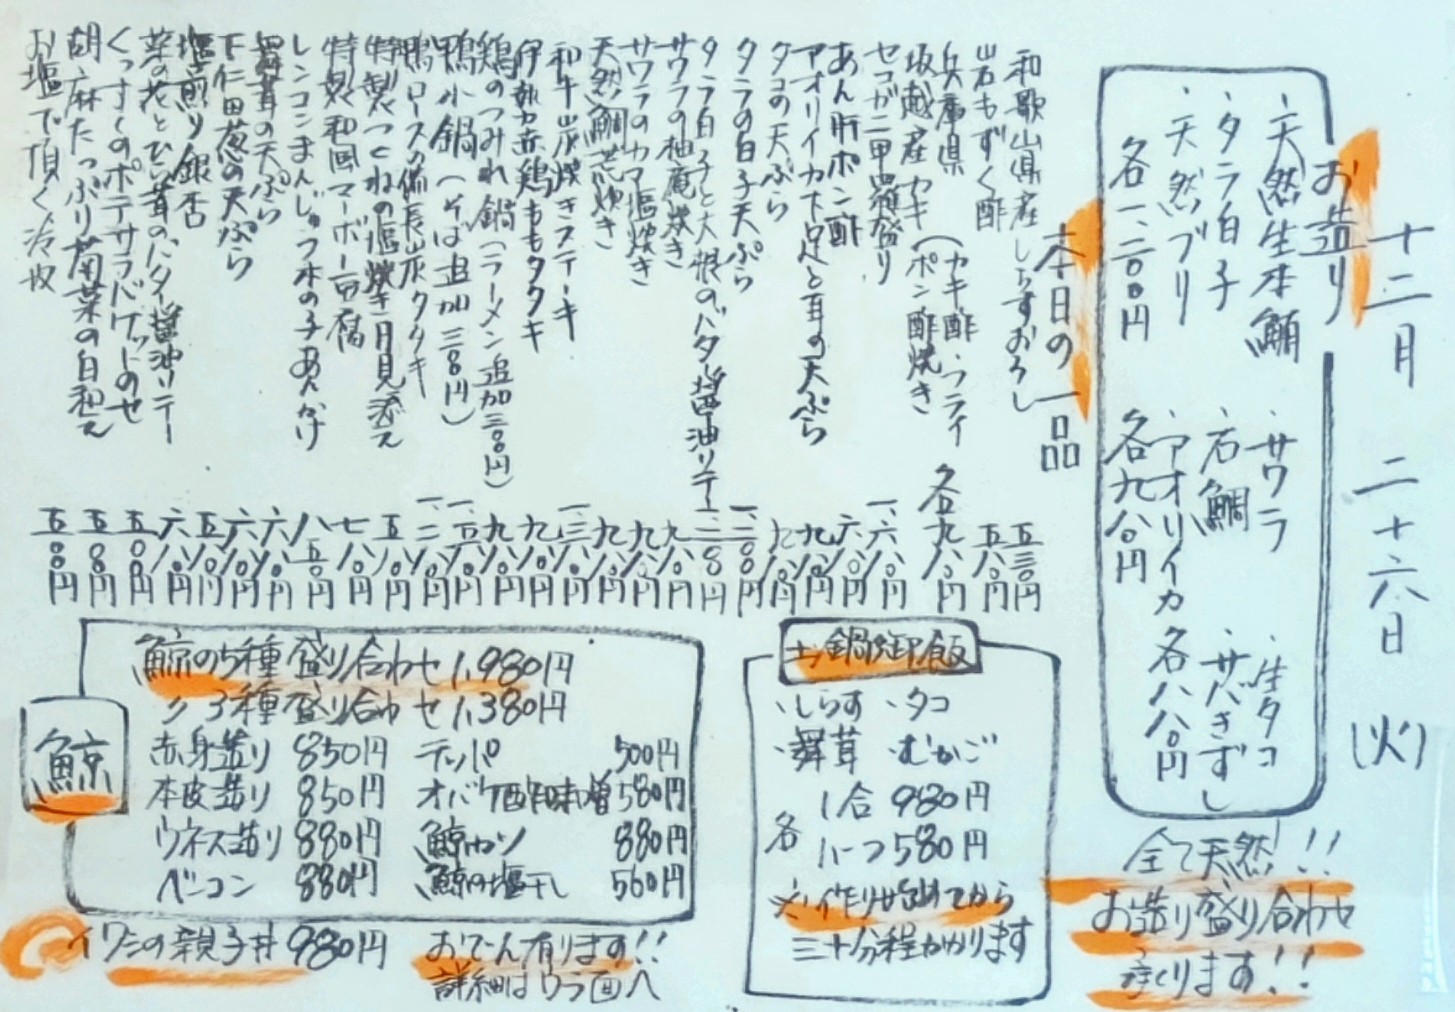 十二月二十六日(火)
お造り
・天然生本鮪
・タラ白子
・天然ブリ
各一、二〇〇円
・サワラ
・石鯛
・アオリイカ
各九八〇円
・生タコ
・サバきずし
各八八〇円
全て天然!!
お造り盛り合わせ
承ります!!
本日の一品
和歌山県産しらすおろし 五三〇円
岩もずく酢 五八〇円
兵庫県
坂越産カキ(カキ酢・フライ
ポン酢焼き 各九八〇円
セコガニ甲羅盛り 一、六八〇円
あん肝ポン酢 六八〇円
アオリイカ下足と耳の天ぷら 九八〇円
タコの天ぷら 九八〇円
タラの白子天ぷら 一、二〇〇円
タラ白子と大根のバター醤油ソテー 一、二八〇円
サワラの柚庵焼き 九八〇円
サワラのカマ塩焼き 九八〇円
天然鯛荒炊き 九八〇円
和牛炭焼きステーキ 一、三八〇円
伊勢赤鶏ももタタキ 九八〇円
鶏のつみれ鍋(ラーメン追加三〇〇円) 九八〇円
鴨小鍋(そば追加三〇〇円)
鴨ロースの備長炭タタキ 一、二八〇円
特製つくねの塩焼き月見添え 五八〇円
特製和風マーボー豆腐 七八〇円
レンコンまんじゅうホの子あんかけ 八五〇円
舞茸の天ぷら 六八〇円
下仁田葱の天ぷら 六八〇円
塩煎り銀杏 五八〇円
菜の花とひら茸のバター醤油ソテー 六八〇円
くんすくのポテサラバゲットのせ 五八〇円
胡麻たっぷり菊菜の白和え 五八〇円
お塩で頂く冷奴 五八〇円
土鍋御飯
・しらす ・タコ
・舞茸 ・むかご
各
1合 980円
ハーフ 580円
※作り始めてから
三十分程かかります
鯨
鯨の5種盛り合わせ 1,980円
〃 3種盛り合わせ 1,380円
赤身造り 850円 テッパ 500円
本皮造り 850円 オバケ酢味噌 580円
ウネス造り 880円 鯨カツ 880円
ベーコン 880円 鯨の塩干し 560円
イワシの親子丼 980円
おでん有ります!!
詳細はウラ面へ